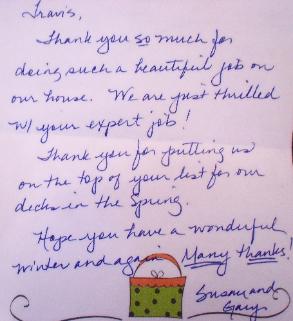 Travis,
Thank you so much for
doing such a beautiful job on
our house. We are just thrilled
w/ your expert job!
Thank you for putting us
on the top of your list for our
decks in the Spring.
Hope you have a wonderful
winter and again Many thanks!
Susan and
Gary